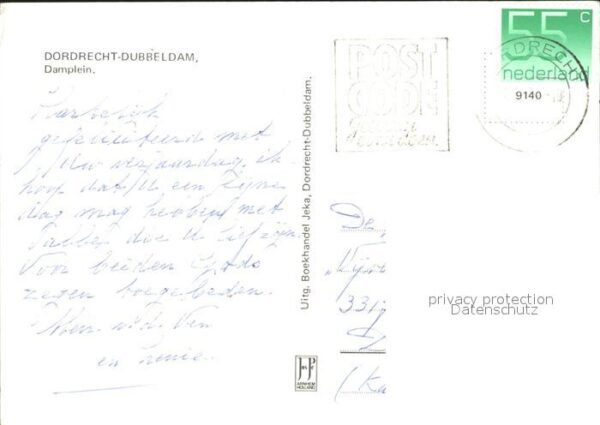 DORDRECHT-DUBBELDAM,
Damplein.
Hartelijk
gefeliciteerd met
Uw verjaardag, ik
hoop dat U een fijne
dag mag hebben met
allen die U lief zijn
Voor beiden Gods
zegen toegebeden.
en
Uitg. Boekhandel Jeka, Dordrecht-Dubbeldam.
JosPe
ARNHEM
HOLLAND
POST
CODE
55 c
nederland
DORDRECHT
9140
De
331
privacy protection
Datenschutz